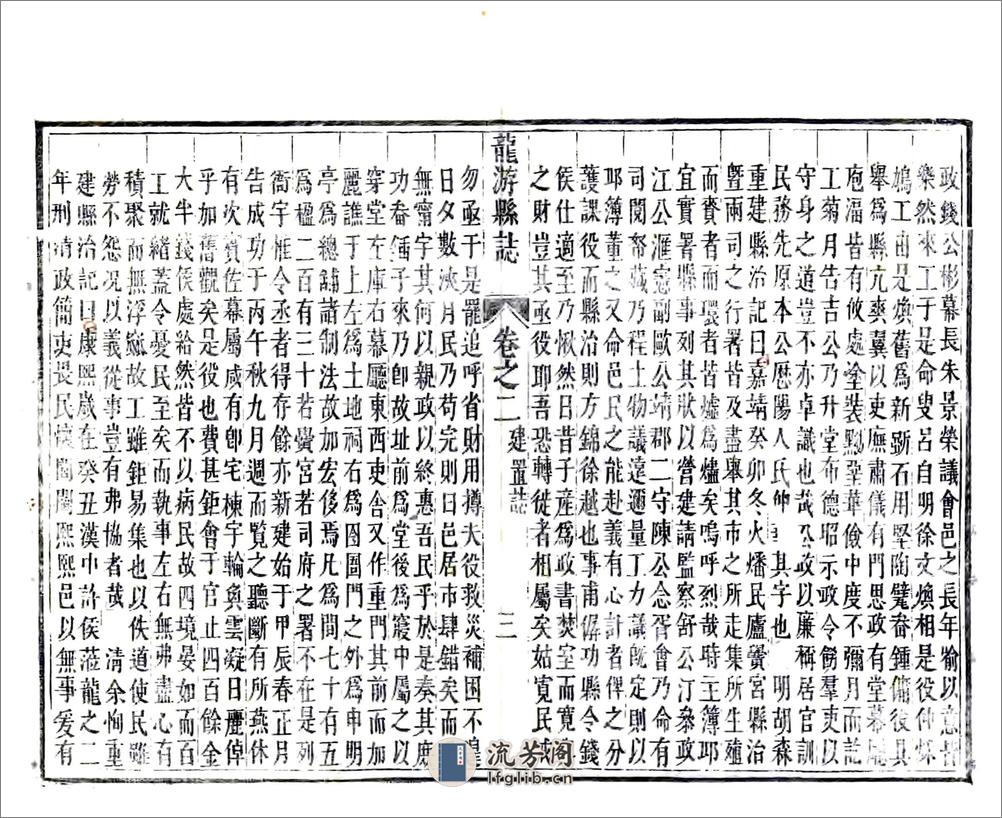 政錢公彬幕長朱景榮議會邑之長年喻以意皆
樂然來工于是命叟呂自明徐文煥相是役仲冬
鳩工由是煥舊為新斵石用堅陶甓畚鍤傭役具
舉為縣亢爽翼以吏廡肅儀有門思政有堂幕廳
庖湢皆有攸處塗裝黝堊華儉中度不彌月而訖
工菊月告吉公乃升堂布德昭示政令飭羣吏以
守身之道豈不亦卓誠也哉公政以廉稱居官訓
民務先原本公曆陽人氏仲 其字也 明胡森
重建縣治記曰嘉靖癸卯冬火燔民廬黌宮縣治
曁兩司之行署皆及盡舉其市之所走集所生殖
而賚者而環者皆墟為爐矣嗚呼烈哉時主簿邛
宜實署縣事列其狀以營建請監察舒公汀叅政
江公滙憲副歐公靖郡二守陳公念胥會乃命有
司閱帑藏乃程土物議遠邇量工力議旣定則以
邛簿董之又命邑民之能赴義有心計者俾之分
護課役而縣治則方錦徐越也事甫僝功縣令錢
侯仕適至乃愀然曰昔子產為政書焚室而寬其征與
之財豈其亟役耶吾恐轉徙者相屬矣姑寬民
龍游縣誌 卷之二 建置誌 三
勿亟于是罷追呼省財用撙夫役救災補困不遑
日夕數浹月民乃苟完則曰邑居市肆錯矣而
無甯宇其何以親政以終惠吾民乎於是奏其庶
功畚鍤子來乃卽故址前為堂後為寢中屬之以
穿堂左庫右幕廳東西吏舍又作重門其前而加
麗譙于上左為土地祠右為囹圄門之外為申明
亭為總舖諸制法故加宏後焉凡為間七十有五
為楹二百有三十若黌宮若司府之署不在是列
衙宇惟令丞者得存餘亦新建始于甲辰春正月
告成功于丙午秋九月週而覽之聽斷有所燕休
有次賓佐幕屬咸有卽宅棟宇輪奐雲凝日麗倬
乎加舊觀矣是役也費甚鉅會于官止四百餘金
大半錢侯處給然皆不以病民故四境晏如而百
工就緒葢令憂民至矣而執事左右無弗盡心有
積聚而無浮觖故工雖鉅易集也以佚道使民雖
勞不怨况以義從事豈有弗協者哉 清余恂重
建縣治記曰康熙歲在癸丑漢中許侯蒞龍之二
年刑清政簡吏畏民懷閭閻熙熙邑以無事爰有
流芳閣
lfglib.cn